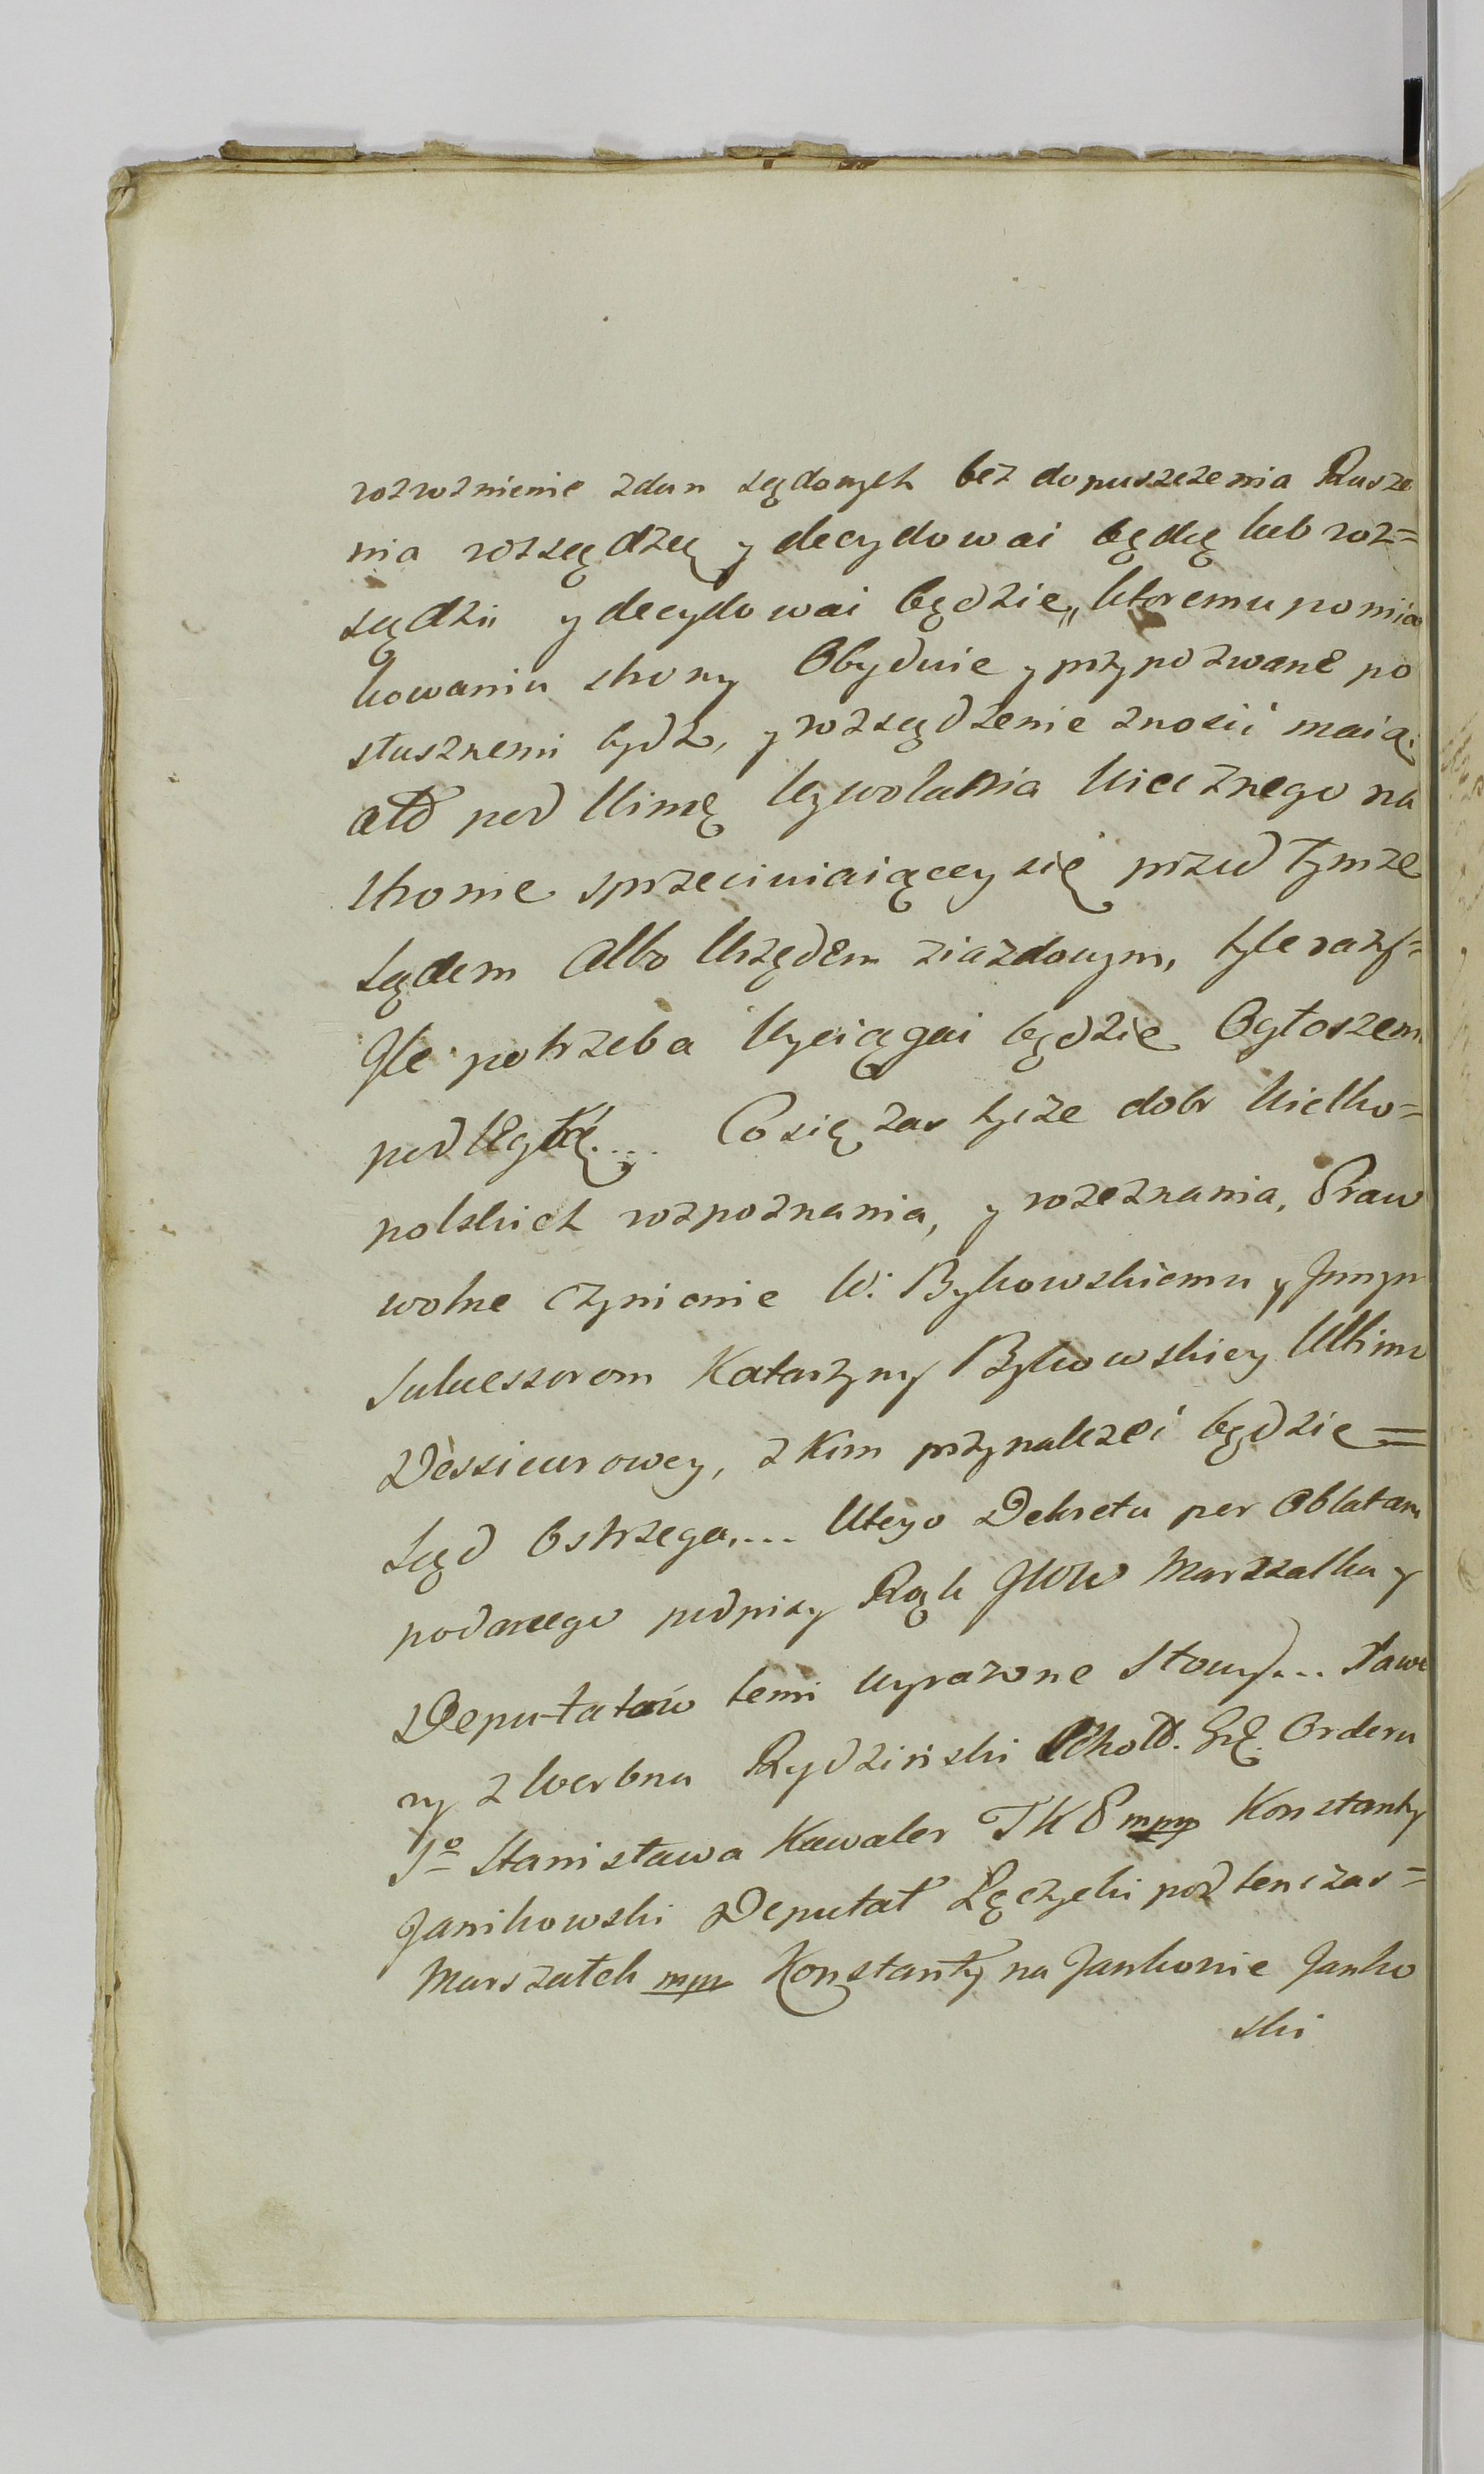 rozroznienie zdan sądowych bez dopuszczenia Rusze
nia rozsądzą y decydowai będą lub roz=
sądzi y decydowai będzie„ ktoremu pomia
kowaniu strony Obydwie y przypozwane po
słusznemi bydz, y rozsądzenie znosić maią.
a to pod Winą Wywołania Wiecznego na
stronie sprzeciwiaiącey się przed tymże
Sądem Albo Urzędem ziazdowym, tyle razy=
Jle potrzeba Wyciągai będzie Ogłoszen
podległą.... Co się zas tycze dobr Wielko=
polskich rozpoznania, y rozeznania, Praw
wolne czynienie W: Bykowskiemu y Jnnym
Sukcessorom Katarzyny Bykowskiey Ultimo
Dessieurowey, z Kim przynależeć będzie =
Sąd Ostrzega.... Utego Dekretu per Oblatam
podanego podpisy Rąk JWW Marszałka y
Deputatów temi wyrazone Słowy... Xawe
ry z Werbna Rydziński Orderu
So Stanisława Kawaler TKP mpp Konstanty
Janikowski Deputat Łęczycki pod ten czas=
Marszałek mpp Konstanty na Jankowie Janko
ski